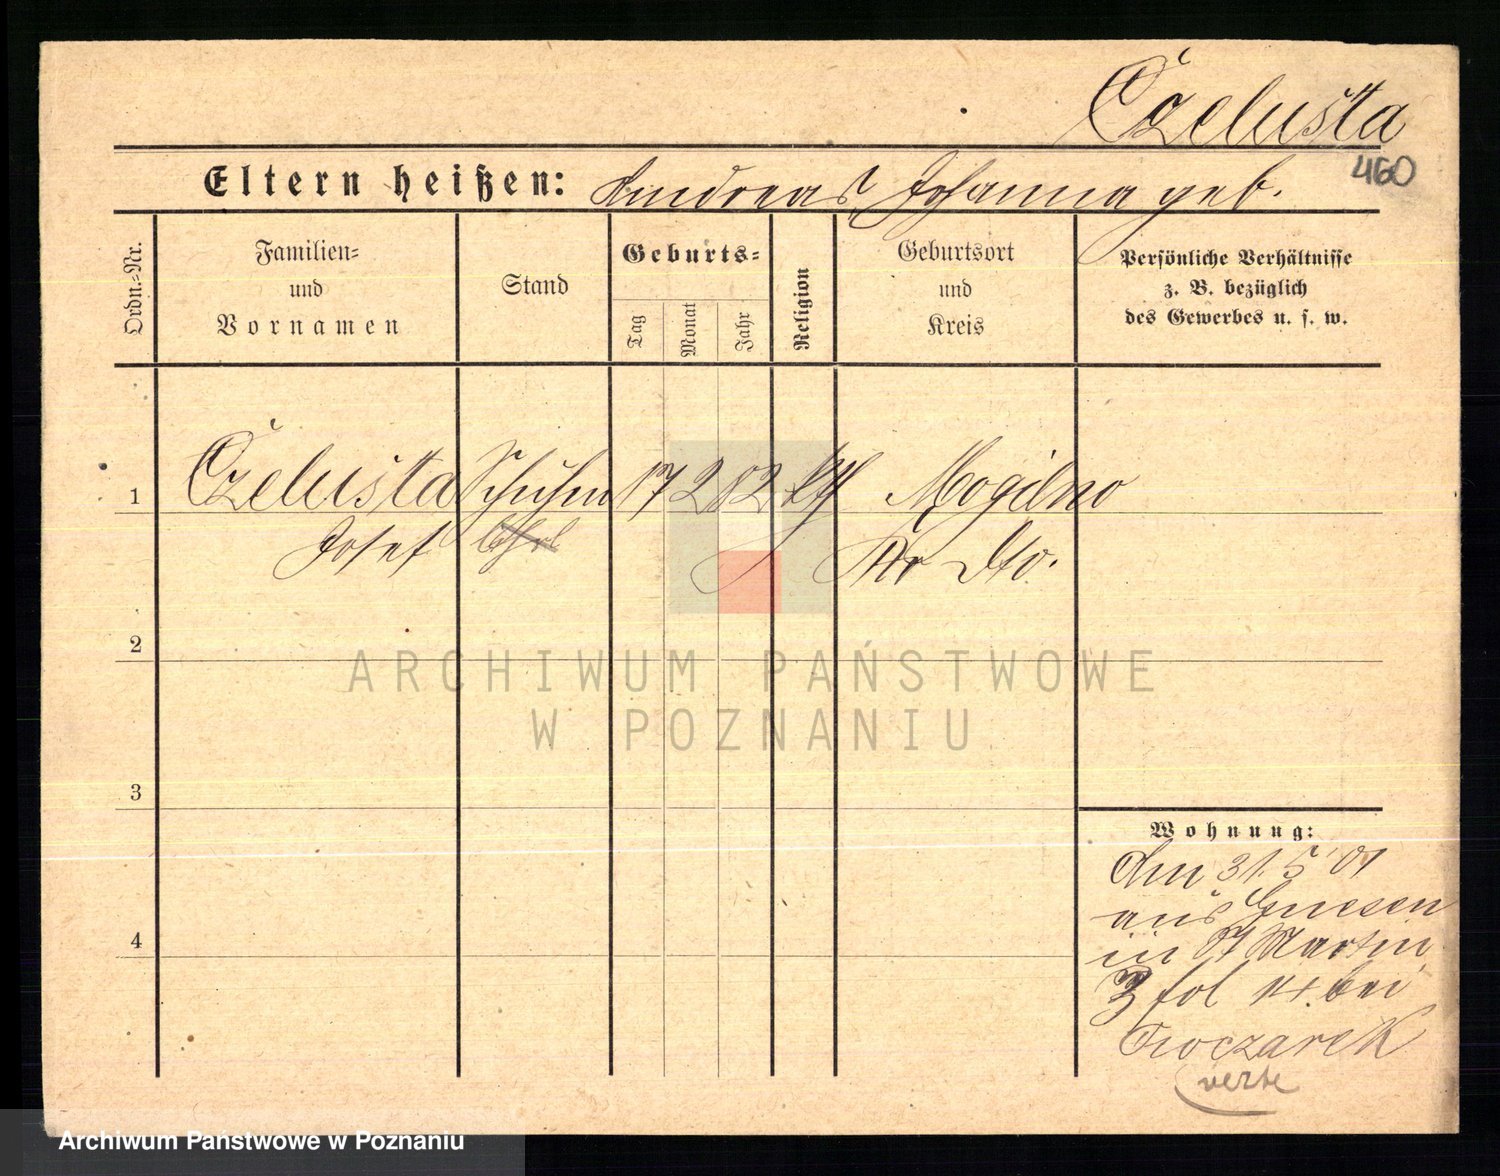 Czelusta
460
Eltern heißen: Andreas, Johanna geb.
Ordn.-Nr.
Familien-
und
Vornamen
Stand
Geburts-
Tag
Monat
Jahr
Religion
Geburtsort
und
Kreis
Persönliche Verhältnisse
z. B. bezüglich
des Gewerbes u. s. w.
1 Czelusta Schuhm 17 2 82 kth Mogilno
Josef Kr Dto.
2
3
4
Wohnung:
Am 31.5 01
aus Gnesen
in St Martin
3 fol 14. bei
verte
ARCHIWUM PAŃSTWOWE
W POZNANIU
Archiwum Państwowe w Poznaniu